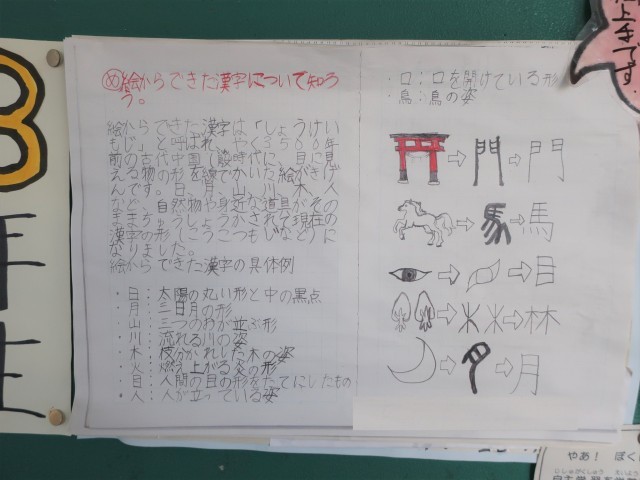 め 絵からできた漢字について知ろ
う。
絵からできた漢字は「しょうけい
もじ」と呼ばれ、やく3500年
前の古代中国(殷時代に、目に見
える物の形を線でかいた絵がきげ
んです。日、月、山、川、木、人
など、自然物や身近な道具がその
まままっしょうかされて現在の
漢字の形
なりました。
絵からできた漢字の具体例
・日:太陽の丸い形と中の黒点
・月:三日月の形
・山:三つのお山が並ぶ形
・川:流れる川の姿
・木:枝分かれした木の姿
・火:燃え上がる炎の形
・目:人間の目の形をたてにしたもの
・人:人が立っている姿
・口:口を開けている形
・鳥:鳥の姿
門 門
馬 馬
目
木木 林
月
3
年
生
上手です
やあ! ぼく